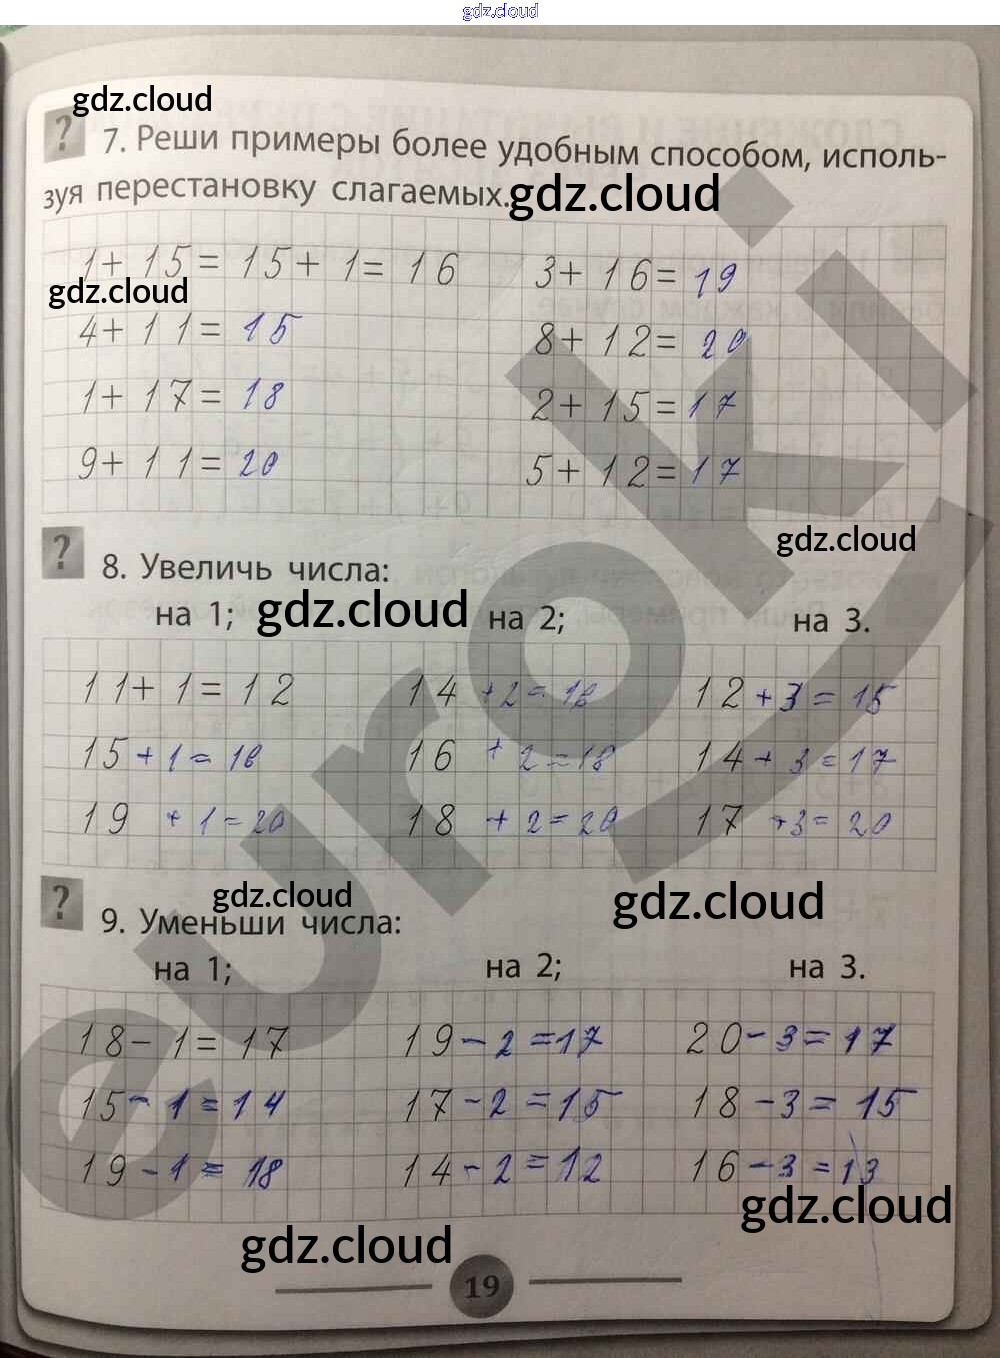 gdz.cloud
gdz.cloud
? 7. Реши примеры более удобным способом, исполь-
зуя перестановку слагаемых. gdz.cloud
1+ 15= 15+ 1= 16 3+ 16= 19
gdz.cloud
4+ 11= 15 8+ 12= 20
1+ 17= 18 2+ 15= 17
9+ 11= 20 5+ 12= 17
gdz.cloud
? 8. Увеличь числа:
на 1; gdz.cloud на 2; на 3.
11+ 1= 12 14 +2= 16 12 +3= 15
15 +1= 16 16 +2=18 14+ 3=17
19 +1=20 18 +2=20 17 +3= 20
? gdz.cloud gdz.cloud
9. Уменьши числа:
на 1; на 2; на 3.
18- 1= 17 19-2=17 20-3=17
15-1=14 17-2=15 18-3=15
19-1=18 14-2=12 16-3=13
gdz.cloud
gdz.cloud
19
euroki